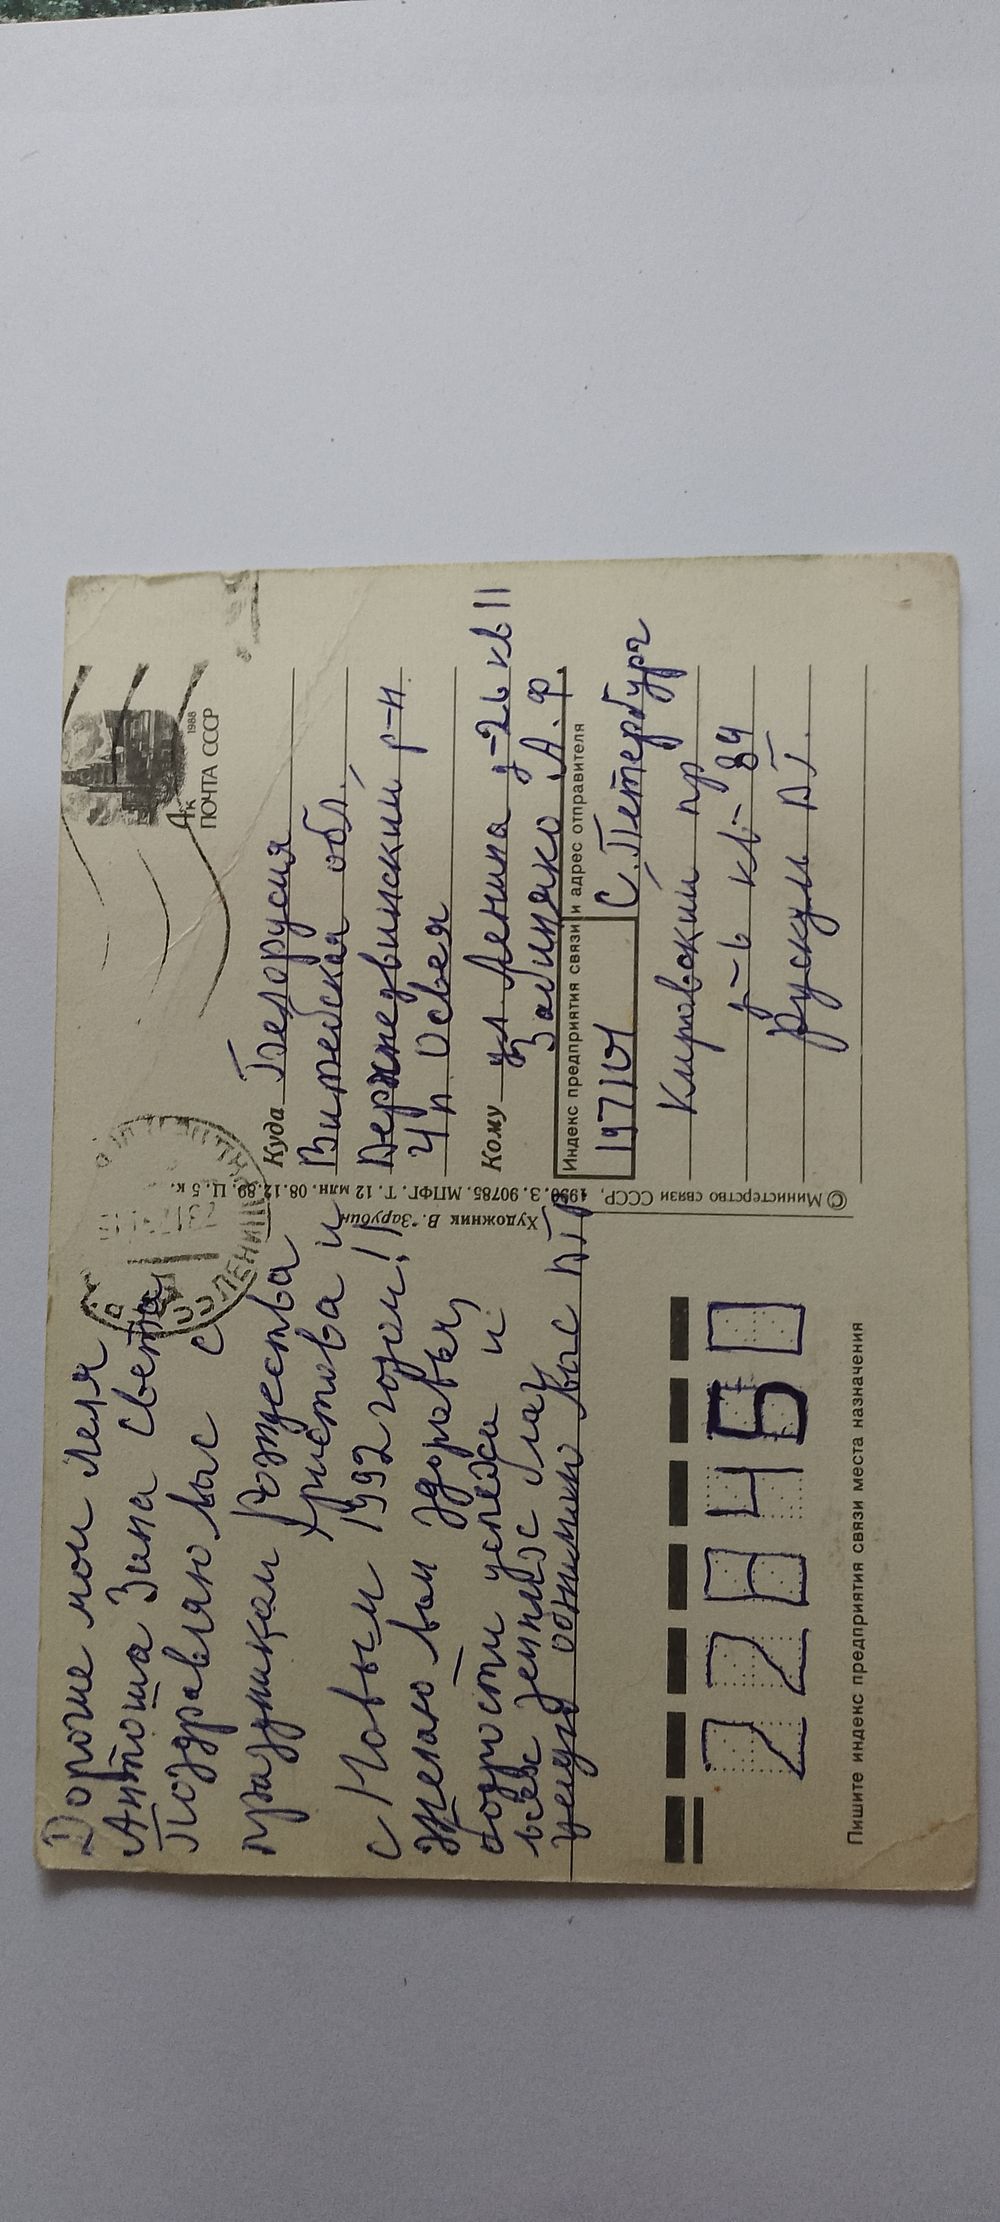 Дорогие мои Леля
Антоша Зина Света
Поздравляю вас с
праздником Рождества
Христова и
с Новым 1992 годом!!
Желаю вам здоровья,
бодрости успеха и
всех земных благ
целую обнимаю вас
4к
1988
ПОЧТА СССР
Куда Белорусия
Витебская обл.
Верхнедвинский р-н
Чп. Освея
Кому ул Ленина д-26 кв 11
Забиняко А. Ф.
Индекс предприятия связи и адрес отправителя
197101 С. Петербург
Кировский пр
д-ь кв-84
Рускуль
© Министерство связи СССР, 1990. З. 90785. МПФГ. Т. 12 млн. 08.12.89. Ц. 5 к.
Художник В. Зарубин
228460
Пишите индекс предприятия связи места назначения